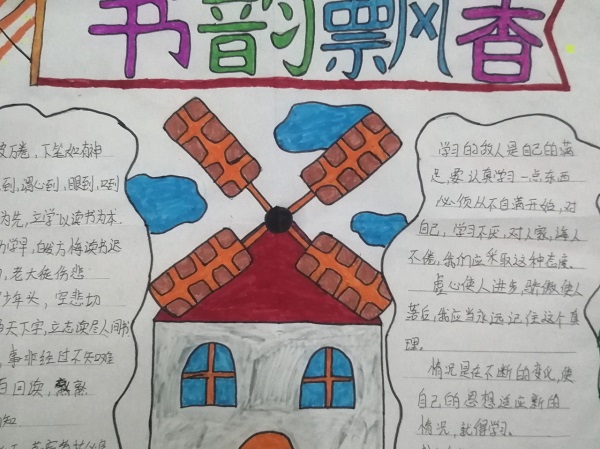 书韵飘香
破万卷，下笔如有神
到，谓心到，眼到，口到
为先，立学以读书为本。
勤学早，白发方悔读书迟
，老大徒伤悲
少年头，空悲切
天下字，立志读尽人间书
事非经过不知难
百回读，熟
知
学习的敌人是自己的满
足，要认真学习一点东西
必须从不自满开始，对
自己，学习不厌，对人家，诲人
不倦，我们应采取这种态度。
虚心使人进步，骄傲使人
落后，我应当永远记住这个真
理。
情况是在不断的变化，使
自己的思想适应新的
情况，就得学习。